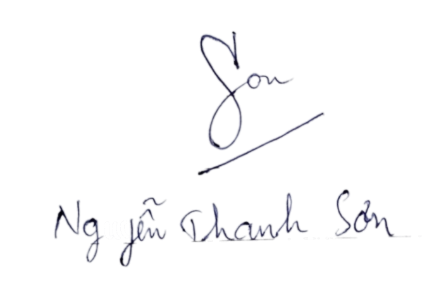 Son
Nguyễn Thanh Sơn